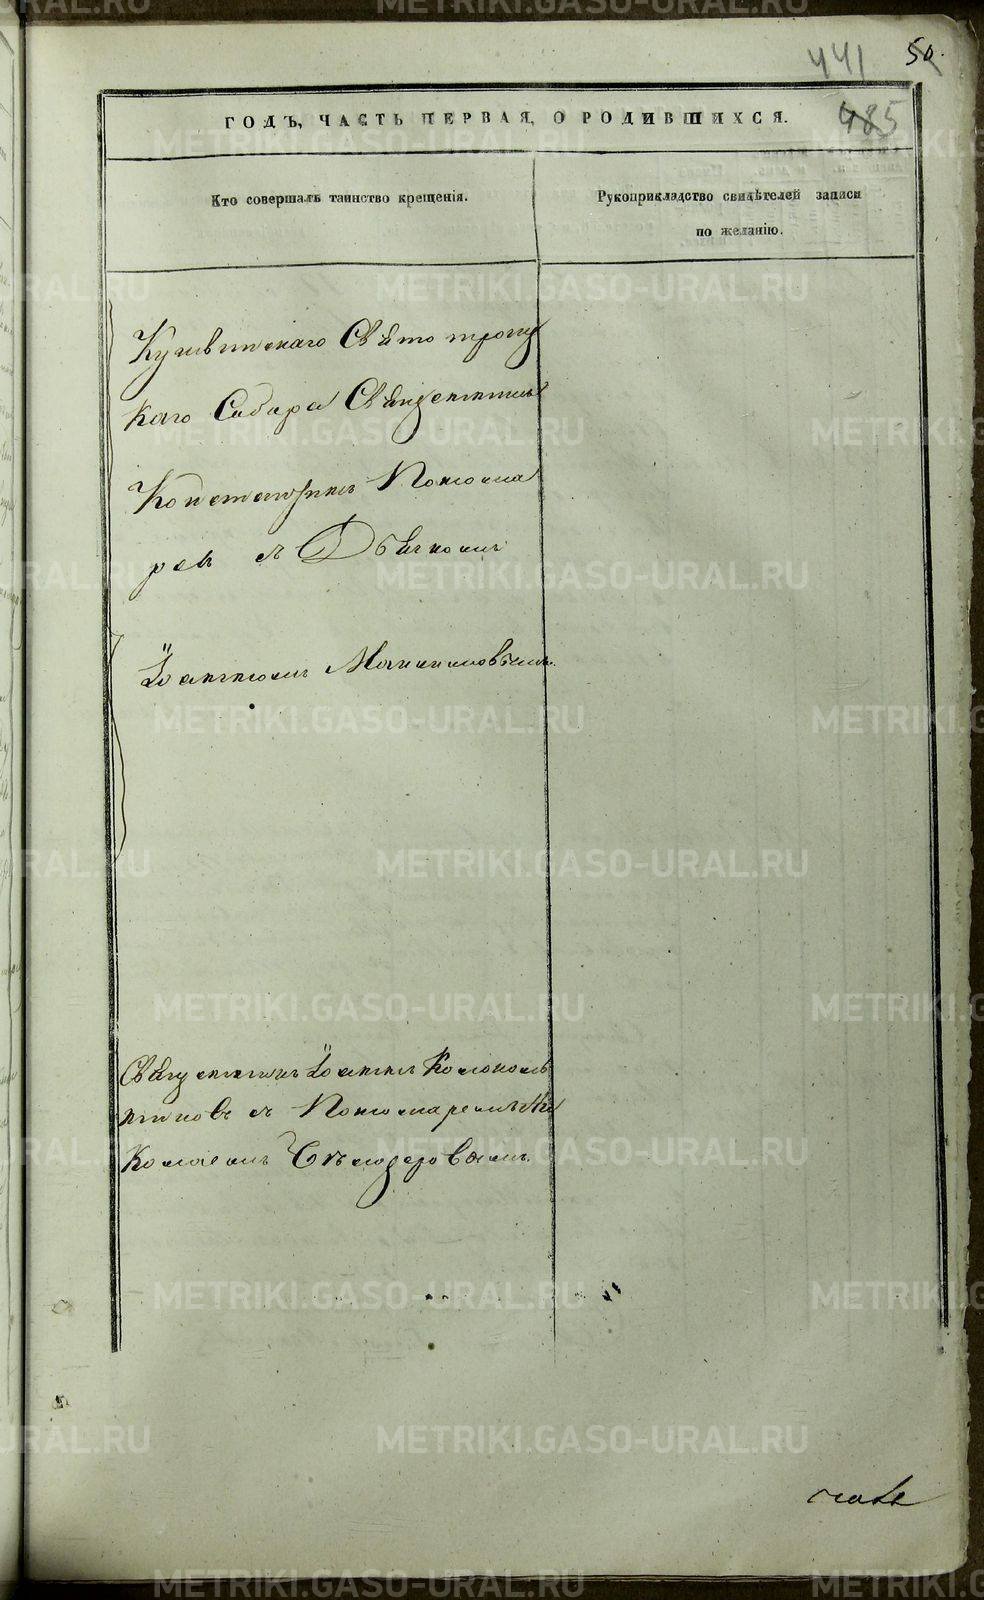 441 50.
485
ГОДЪ, ЧАСТЬ ПЕРВАЯ, О РОДИВШИХСЯ.
Кто совершалъ таинство крещенія.
Рукоприкладство свидѣтелей записи
по желанію.
Кушвинскаго Свято троиц
каго Собора Священникъ
Константинъ Понома
ревъ съ Дьячкомъ
Іоанномъ Максимовымъ.
Священникъ Іоаннъ Колоколь
никовъ съ Пономаремъ Ни
колаемъ
METRIKI.GASO-URAL.RU